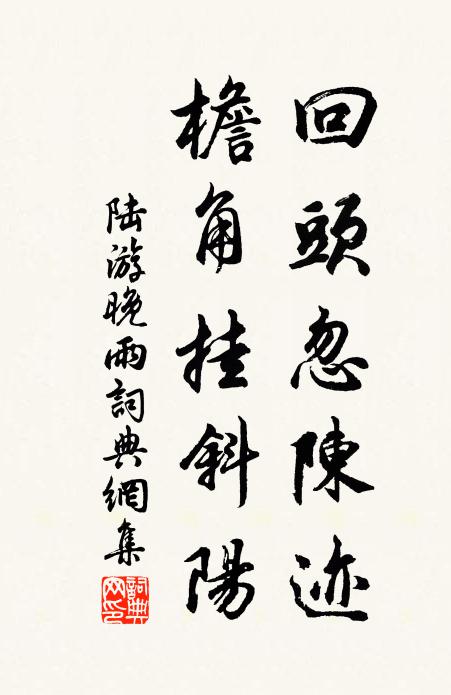 回頭忽陳迹
檐角挂斜陽
陆游晚雨詞典網集
詞典网印